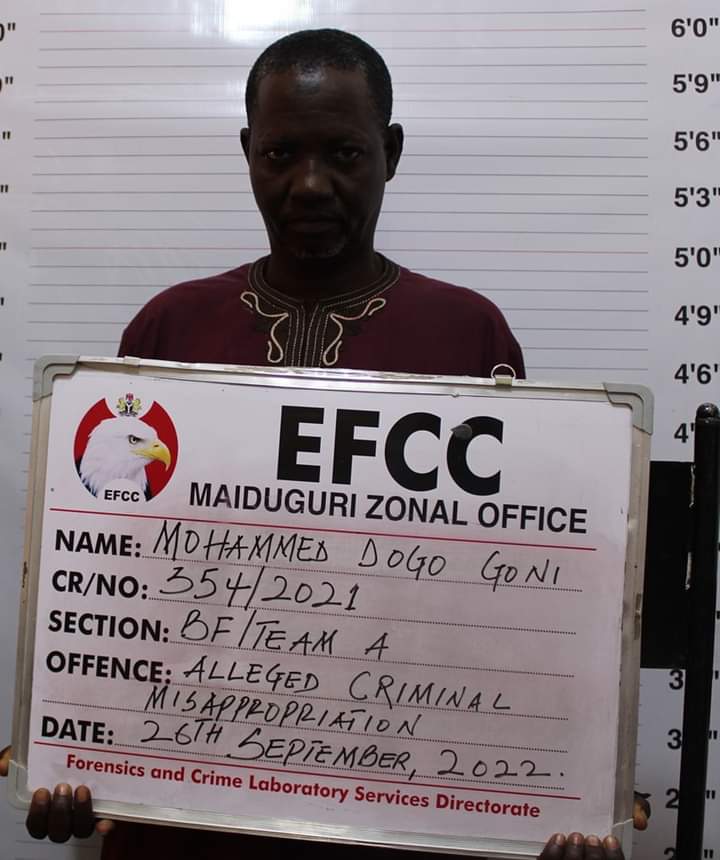 6'0"
5'9"
5'6"
5'3"
5'0"
4'9"
4'6"
EFCC
EFCC
MAIDUGURI ZONAL OFFICE
NAME: MOHAMMED DOGO GONI
CR/NO: 354/2021
SECTION: BF/TEAM A
OFFENCE: ALLEGED CRIMINAL
MISAPPROPRIATION
DATE: 26TH SEPTEMBER, 2022.
Forensics and Crime Laboratory Services Directorate